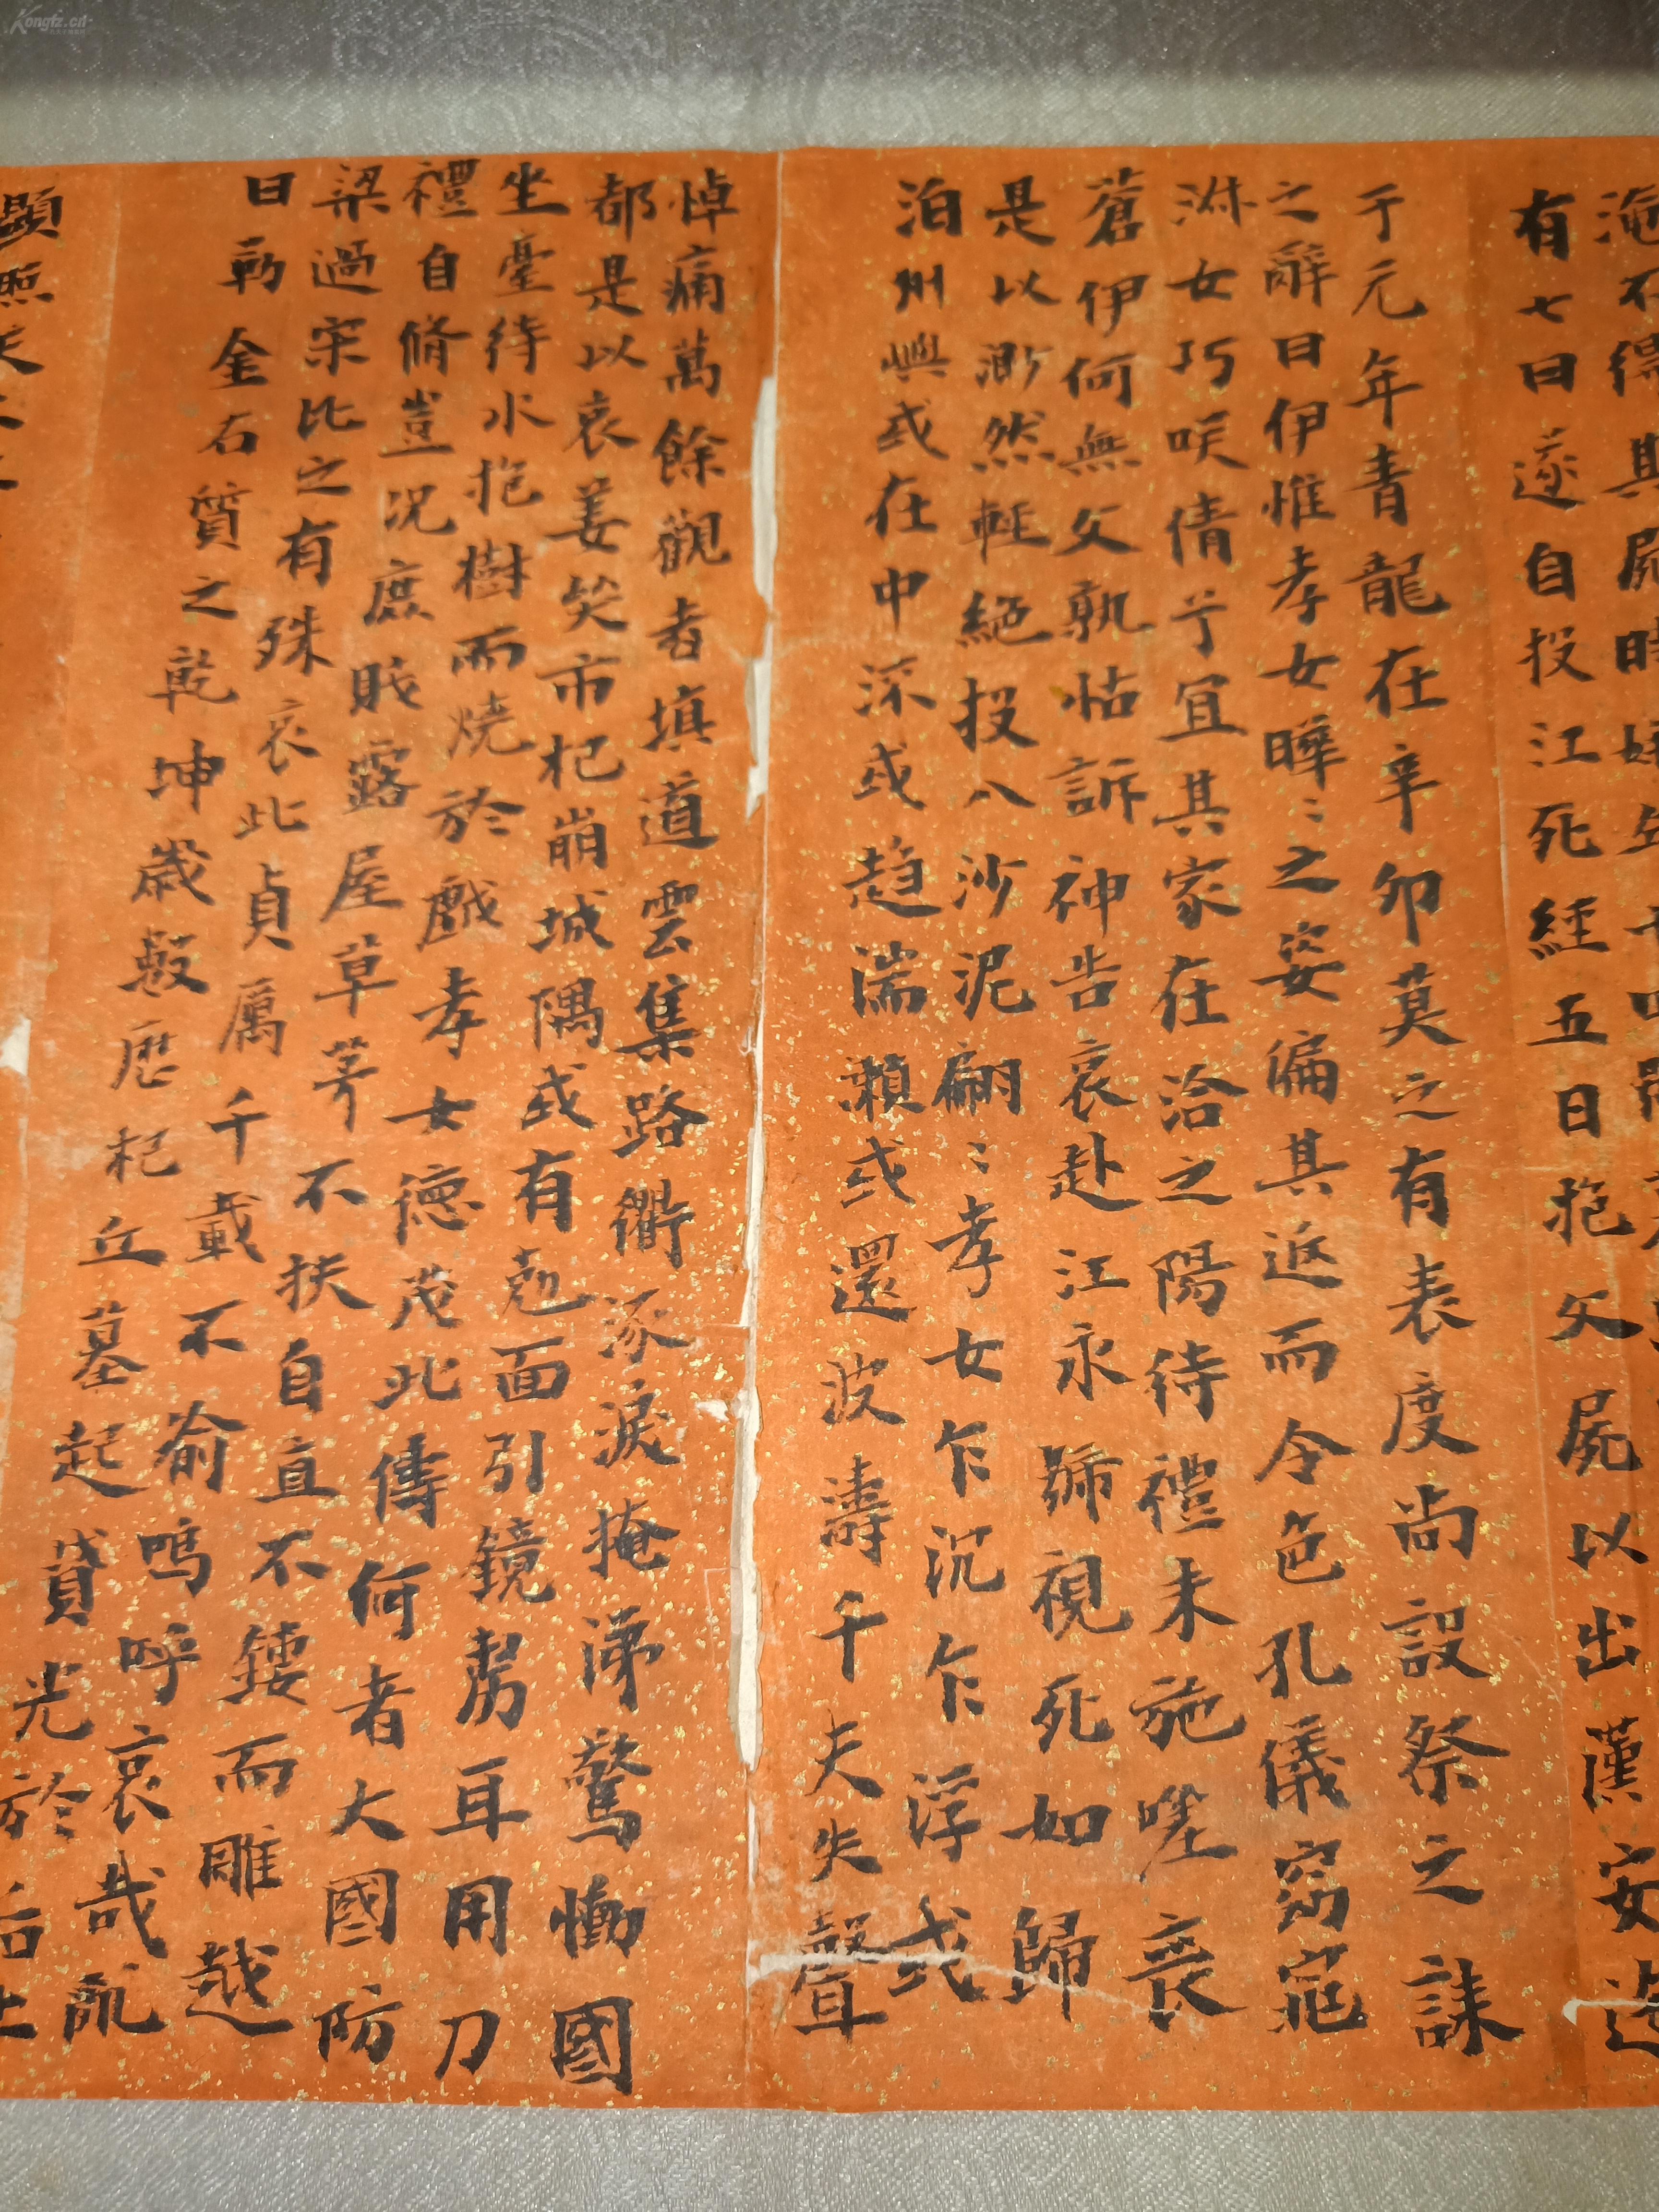 淹不得其屍時娥年十四號
有七日遂自投江死經五日抱父屍以出漢安迄
于元年青龍在辛卯莫之有表度尚設祭之誄
之辭曰伊惟孝女曄〻之姿偏其返而令色孔儀窈窕
淋女巧咲倩兮宜其家在洽之陽待禮未施嗟喪
蒼伊何無父孰怙訴神告哀赴江永號視死如歸
是以渺然輕絕投入沙泥翩〻孝女乍沉乍浮或
泊州嶼或在中流或趋湍瀨或還波濤千夫失聲
悼痛萬餘觀者填道雲集路衢泳淚掩涕驚慟國
都是以哀姜哭市杞崩城隅或有剋面引鏡剺耳用刀
坐臺待水抱樹而燒於戲孝女德茂此儔何者大國防
禮自脩豈况庶賤露屋草茅不扶自直不鏤而雕越
梁過宋比之有殊哀此貞厲千載不渝嗚呼哀哉亂
曰勒金石質之乾坤歲數厯杞丘墓起賁光於后土
顯照夫
Kongfz.cn